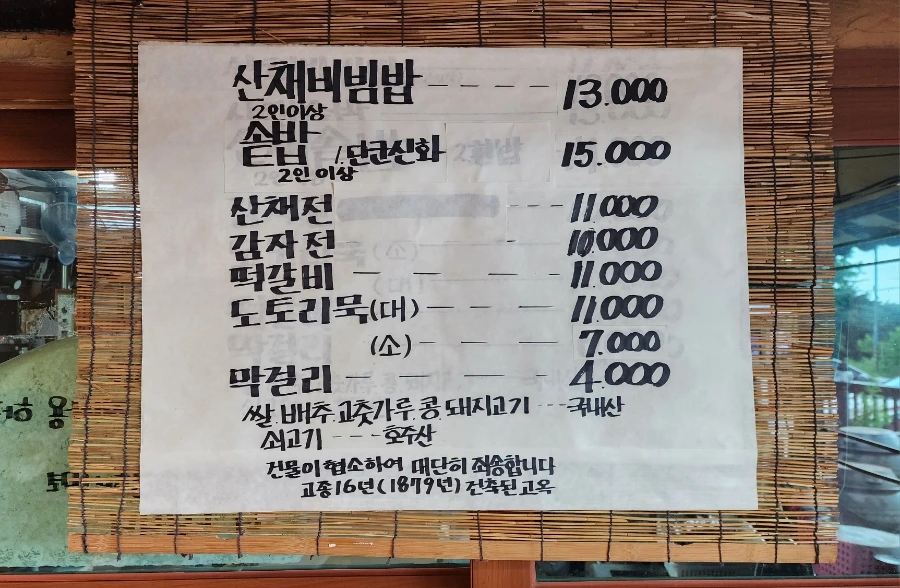 산채비빔밥 ---- 13.000
2인이상
/단군신화 15.000
2인 이상
산채전 --- 11000
감자전 10,000
떡갈비 ---- 11.000
도토리묵(대) ---- 11.000
(소) ---- 7.000
막걸리 ---- 4.000
쌀.배추.고춧가루.콩.돼지고기 --- 국내산
쇠고기 ---- 호주산
건물이 협소하여 대단히 죄송합니다
고종16년(1879년) 건축된 고옥